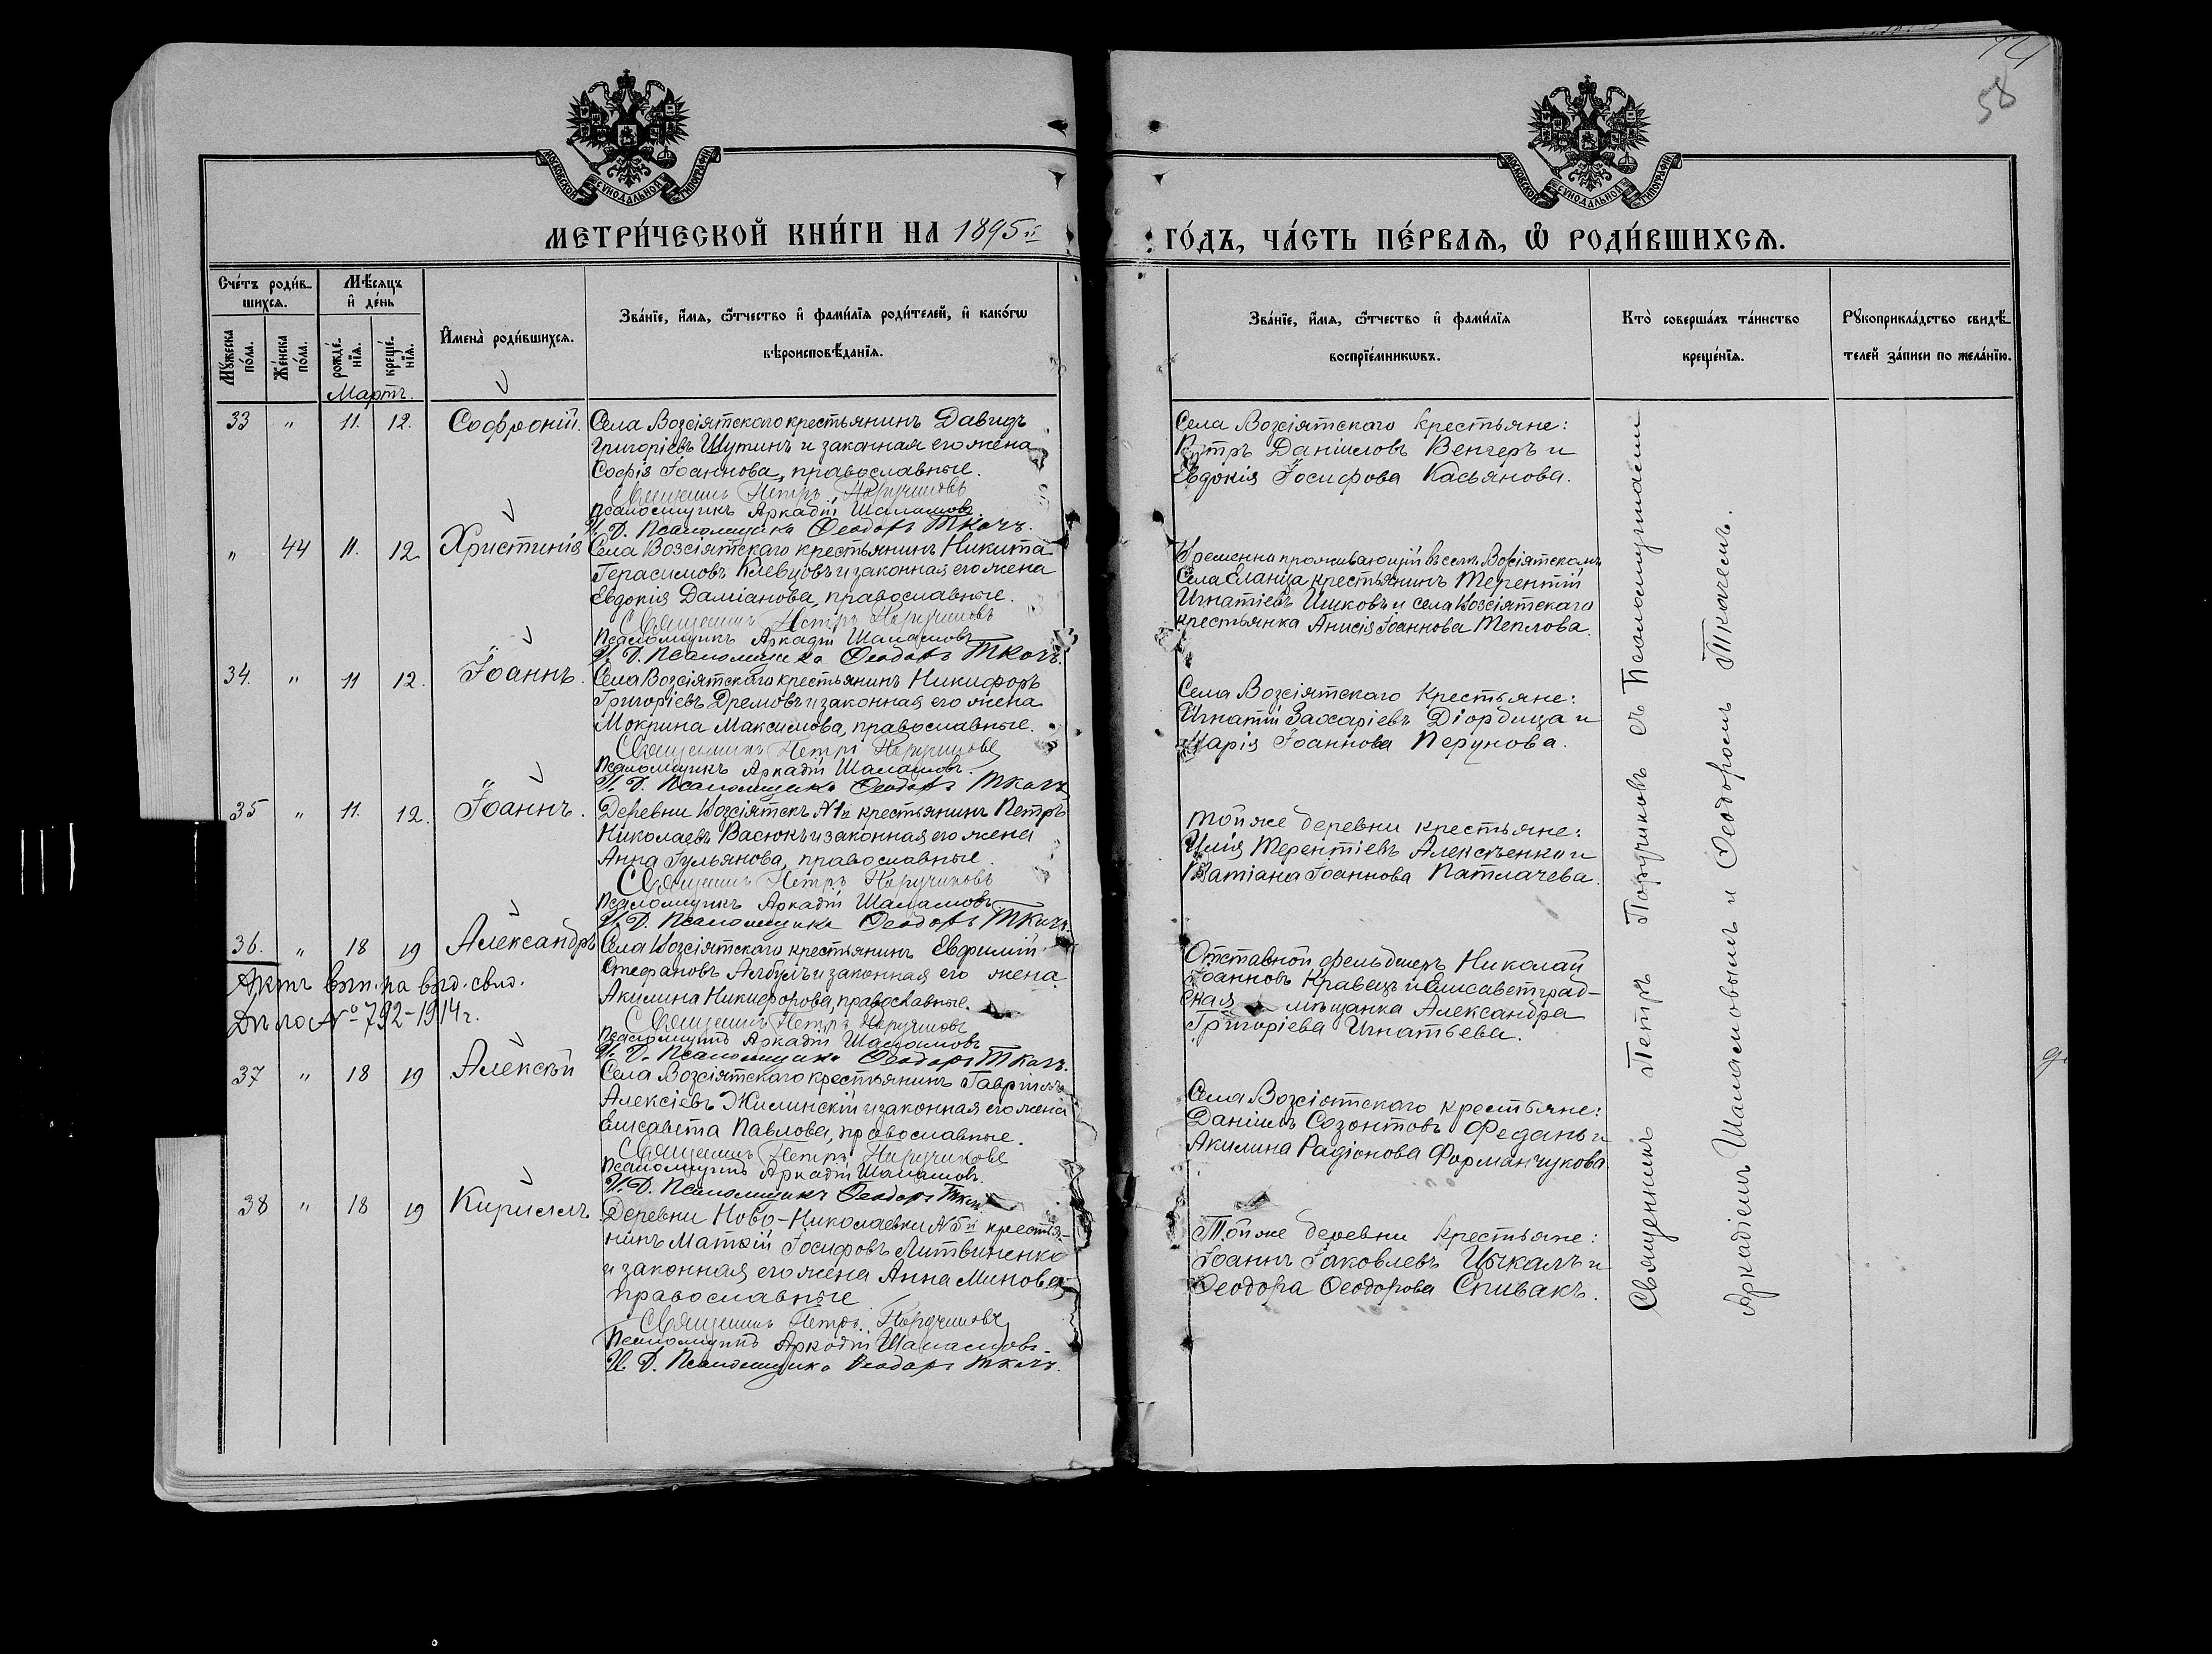 58
МОСКОВСКОЙ СУНОДАЛЬНОЙ ТИПОГРАФІИ
МОСКОВСКОЙ СУНОДАЛЬНОЙ ТИПОГРАФІИ
МЕТРИ́ЧЕСКОЙ КНИ́ГИ НА 1895й
ГО́ДЪ, ЧА́СТЬ ПЕ́РВАѦ, Ѡ҃ РОДИ́ВШИХСѦ.
Сче́тъ роди́в-
шихсѧ.
Мѣ́сѧцъ
и҆ де́нь
Мꙋ́жеска
по́ла.
Же́нска
по́ла.
рожде́-
нїѧ.
креще́-
нїѧ.
И҆мена̀ роди́вшихсѧ.
Зва́нїе, и҆́мѧ, ѻ҆́тчество и҆ фами́лїѧ роди́телей, и҆ како́гѡ
вѣроисповѣ́данїѧ.
Зва́нїе, и҆́мѧ, ѻ҆́тчество и҆ фами́лїѧ
воспрїе́мникѡвъ.
Кто̀ соверша́лъ та́инство
креще́нїѧ.
Рꙋкоприкла́дство свидѣ́-
телей за́писи по жела́нїю.
Мартъ.
33 " 11. 12. Софроній.
Села Возсіятскаго крестьянинъ Давидъ
Григоріевъ Шутинъ и законная его жена
Софія Іоаннова, православные.
Священникъ Петръ Поручиковъ
Псаломщикъ Аркадій Шаламовъ.
И. Д. Псаломщика Ѳеодоръ Ткачъ.
Села Возсіятскаго крестьяне:
Петръ Даніиловъ Венгеръ и
Евдокія Іосифова Касьянова.
" 44 11. 12 Христинія
Села Возсіятскаго крестьянинъ Никита
Герасимовъ Клевцовъ и законная его жена
Евдокія Даміанова, православные.
Священникъ Петръ Поручиковъ
Псаломщикъ Аркадій Шаламовъ
И. Д. Псаломщика Ѳеодоръ Ткачъ.
Временно проживающій въ селѣ Возсіятскомъ
Села Еланца крестьянинъ Терентій
Игнатіевъ и села Возсіятскаго
крестьянка Анисія Іоаннова Теплова.
34. " 11 12. Іоаннъ.
Села Возсіятскаго крестьянинъ Никифоръ
Григоріевъ Дремовъ и законная его жена
Мокрина Максимова, православные.
Священникъ Петръ Поручиковъ
Псаломщикъ Аркадій Шаламовъ.
И. Д. Псаломщика Ѳеодоръ Ткачъ
Села Возсіятскаго Крестьяне:
Игнатій Захаріевъ Діордица и
Марія Іоаннова Перунова.
35 " 11. 12. Іоаннъ.
Деревни Возсіятскъ №1й крестьянинъ Петръ
Николаевъ Васюкъ и законная его жена
Анна Іульянова, православные.
Священникъ Петръ Поручиковъ
Псаломщикъ Аркадій Шаламовъ.
И. Д. Псаломщика Ѳеодоръ Ткачъ.
Той же деревни крестьяне:
Илія Терентіевъ Алексѣенко и
Татіана Іоаннова Патлачева.
36. " 18 19 Александръ
Села Возсіятскаго крестьянинъ Евфимій
Стефановъ Албулъ и законная его жена
Акилина Никифорова, православные.
Священникъ Петръ Поручиковъ
Псаломщикъ Аркадій Шаламовъ
И. Д. Псаломщика Ѳеодоръ Ткачъ.
Дѣло № 792-1914 г.
Отставной фельдшеръ Николай
Іоанновъ Кравецъ и Елисаветград-
ская мѣщанка Александра
Григоріева Игнатьева.
37 " 18 19 Алексѣй
Села Возсіятскаго крестьянинъ Гавріилъ
Алексіевъ Жилинскій и законная его жена
Елисавета Павлова, православные.
Священникъ Петръ Поручиковъ
Псаломщикъ Аркадій Шаламовъ.
И. Д. Псаломщика Ѳеодоръ Ткачъ
Села Возсіятскаго крестьяне:
Даніилъ Созонтовъ Феданъ и
Акилина Радіонова Форманчукова
38 " 18 19 Кириллъ
Деревни Ново-Николаевки №5й крестья-
нинъ Матвій Іосифовъ Литвиненко
и законная его жена Анна Минова
православные
Священникъ Петръ Поручиковъ
Псаломщикъ Аркадій Шаламовъ.
И. Д. Псаломщика Ѳеодоръ Ткачъ.
Той же деревни крестьяне:
Іоаннъ Іаковлевъ Цыкалъ и
Ѳеодора Ѳеодорова Спивакъ.
Священникъ Петръ Поручиковъ съ Псаломщиками
Аркадіемъ Шаламовымъ и Ѳеодоромъ Ткачемъ.